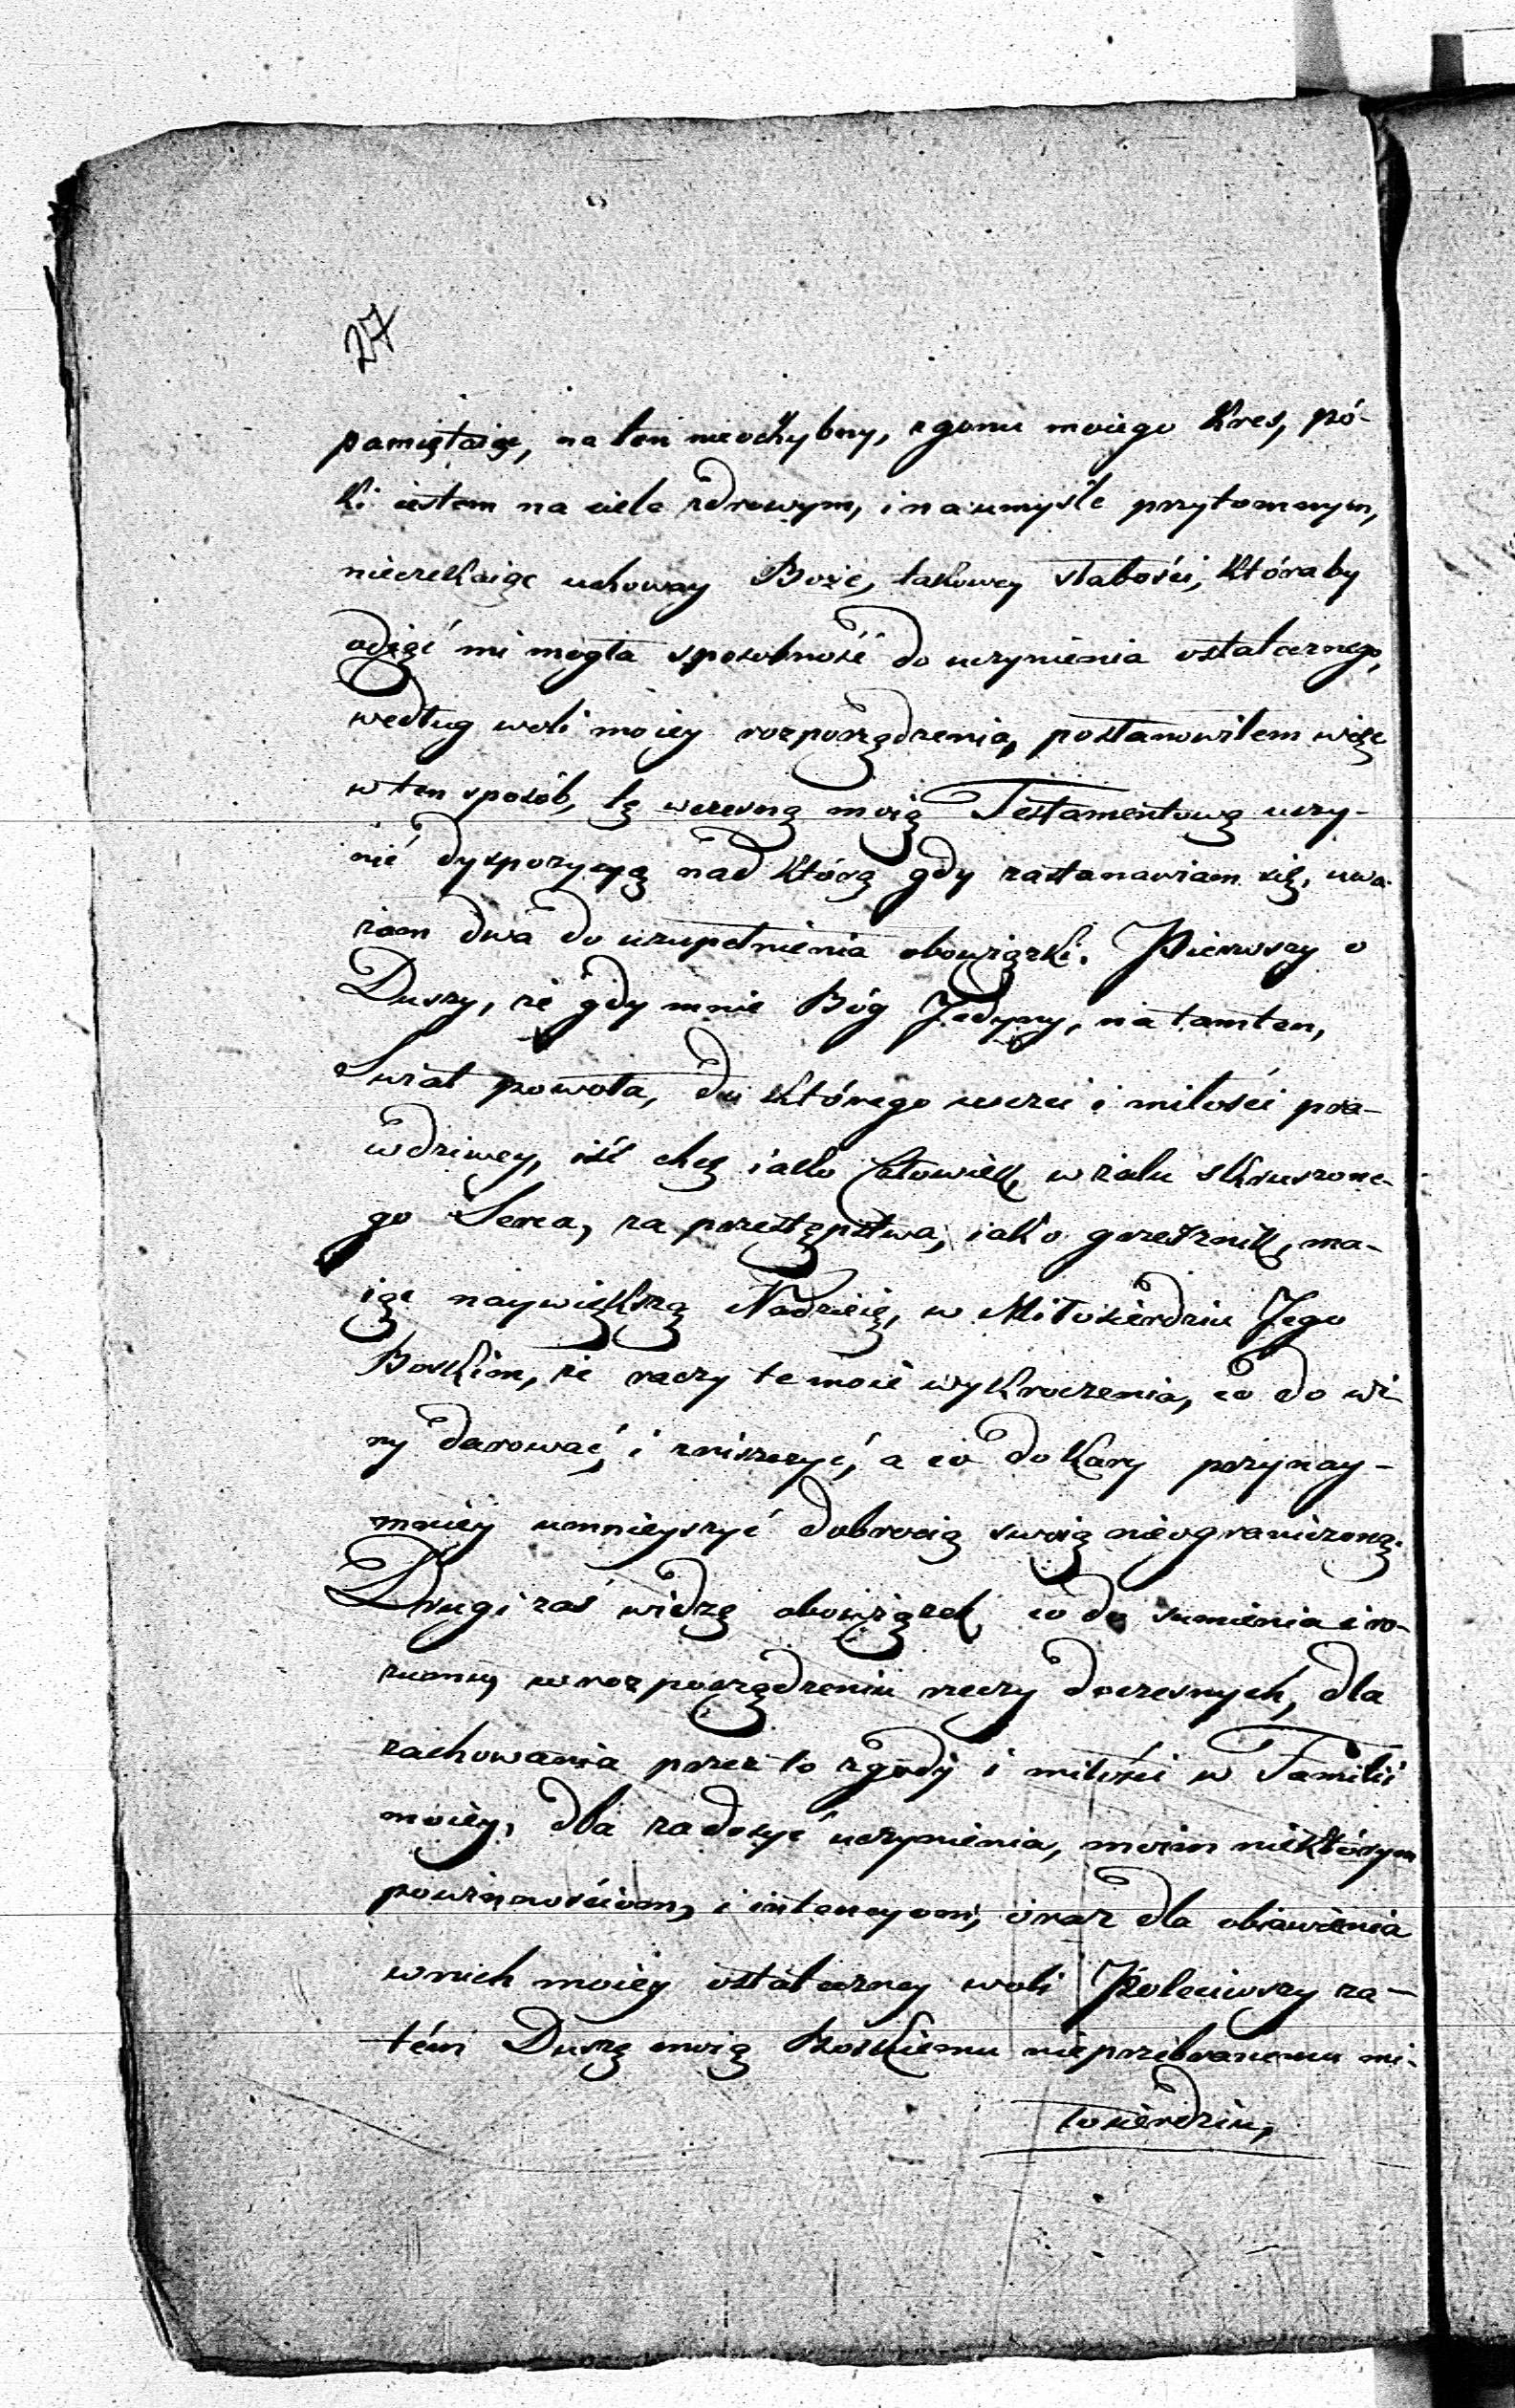 27
pamiętaiąc, na ten nieochybny, zgonu moiego Kres, pó-
ki iestem na ciele zdrowym, i na umyśle przytomnym,
nieczekaiąc uchoway Boże, takowey słabości, któraby
odiąć mi mogła sposobność do uczynienia ostatecznego,
według woli moiey rozporządzenia, postanowiłem więc
w ten sposób, tę wczesną moią Testamentową uczy-
nić dyspozycyą nad którą gdy zastanawiam się, uwa-
żam dwa do uzupełnienia obowiązki. Pierwszy o
Duszy, że gdy mnie Bóg Jedyny, na tamten,
Swiat powoła, do którego uczci i miłości pra-
wdziwey, iść chcę iako Człowiek, w żalu skruszone-
go Serca, za przestępstwa, iako grzesznik, ma-
iąc naywiększą Nadzieię, w Miłosierdziu Jego
Boskim, że raczy te moie wykroczenia, co do wi-
ny darować, i zniszczyć, a co do Kary przynay-
mniey umnieyszyć dobrocią swoią nieograniczoną.
Drugi zaś widzę obowiązek co do sumienia i ro-
zumu, w rozporządzeniu rzeczy doczesnych, dla
zachowania przez to zgody i miłości w Familii
moiey, dla zadosyć uczynienia, moim niektórym
powinnościom, i intencyom, oraz dla obiawienia
w nich moiey ostateczney woli Poleciwszy za-
tém Duszę moią Boskiemu nieprzebranemu mi-
łosierdziu,